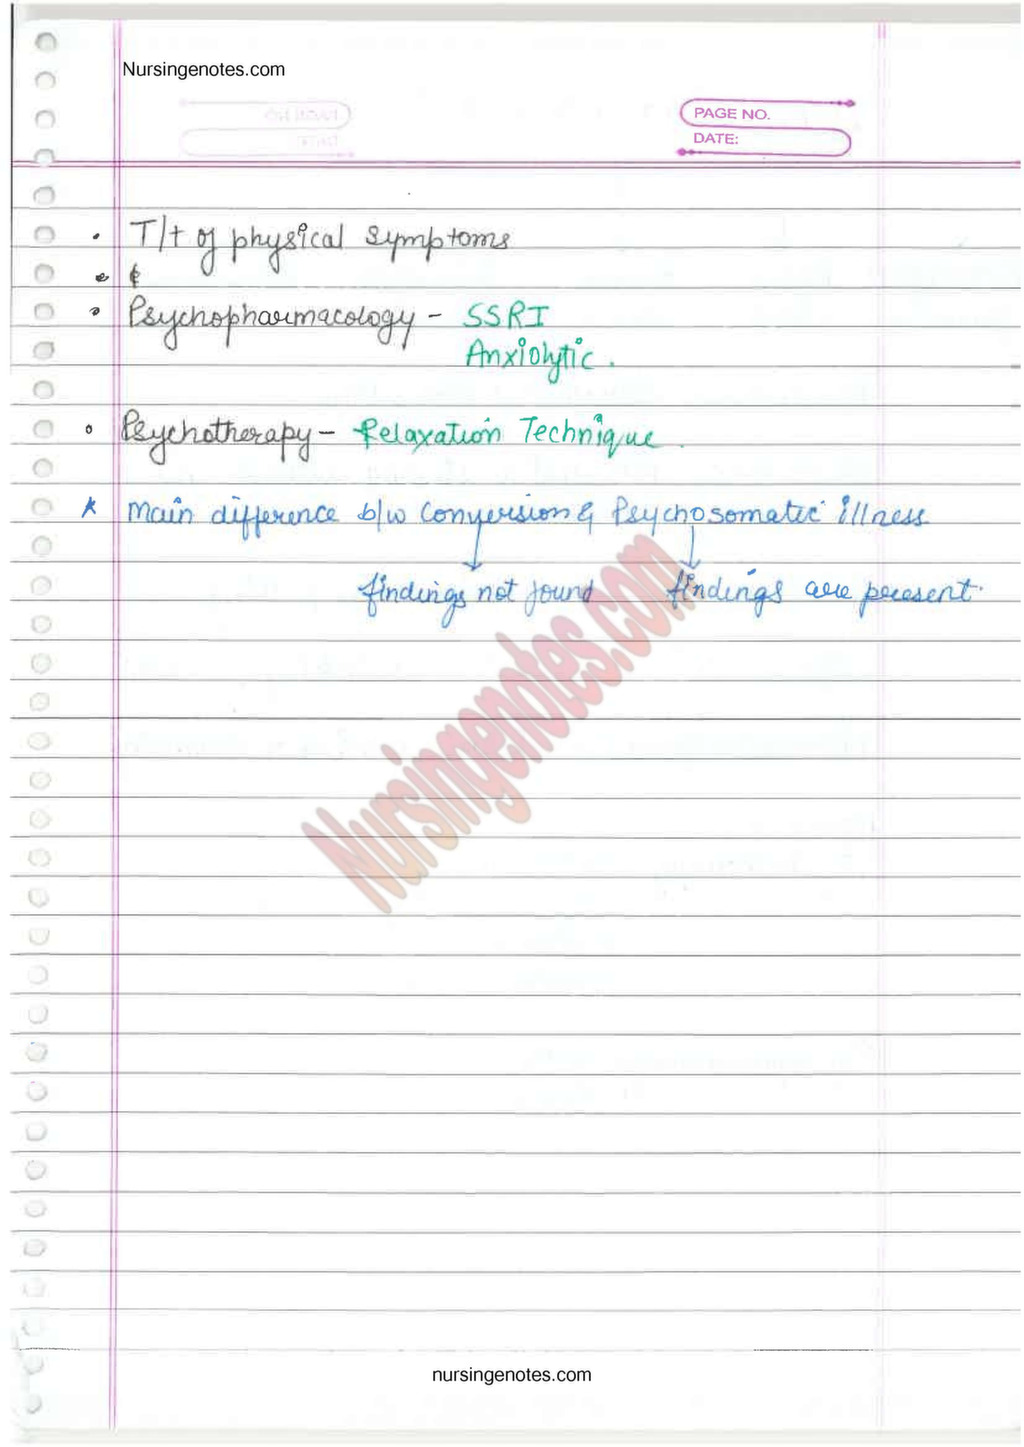 Nursingenotes.com
PAGE NO.
DATE:
• T/t of physical symptoms
• Psychopharmacology - SSRI
Anxiolytic.
• Psychotherapy - Relaxation Technique.
* Main difference b/w Conversion & Psychosomatic illness
findings not found findings are present.
Nursingenotes.com
nursingenotes.com